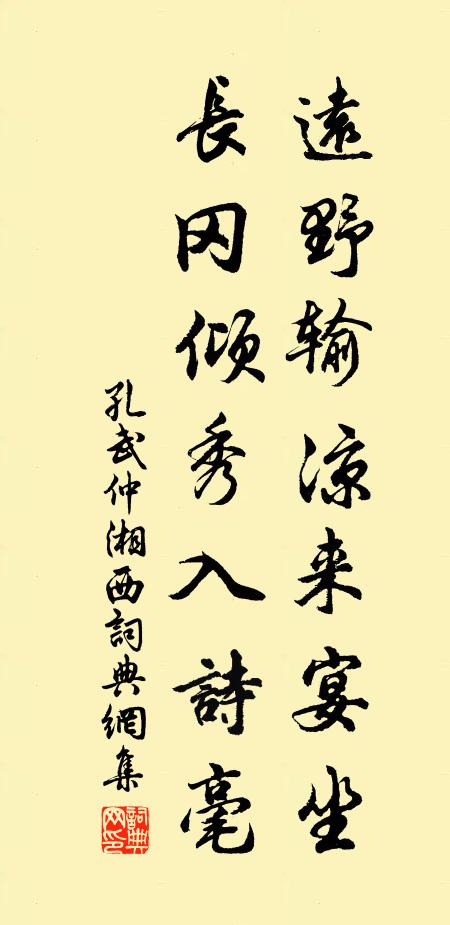 遠野輸涼来宴坐
長冈傾秀入詩毫
孔武仲湘西詞典網集
詞典网印